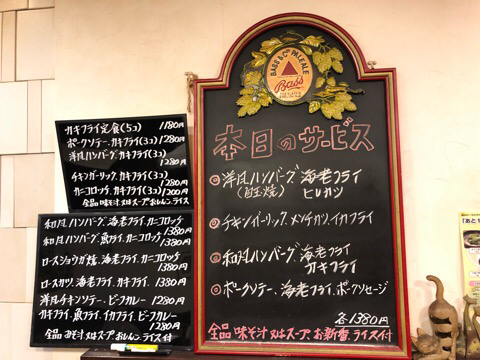 カキフライ定食(5コ) 1180円
ポークソテー、カキフライ(3コ) 1280円
洋風ハンバーグ、カキフライ(3コ)
1280円
チキンガーリック、カキフライ(3コ) 1280円
カニコロッケ、カキフライ(3コ) 1200円
全品 味そ汁又はスープ おしんこ、ライス
和風ハンバーグ、海老フライ、カニコロッケ
1380円
和風ハンバーグ、魚フライ、カニコロッケ
1380円
ロースショウガ焼、海老フライ、カニコロッケ
1380円
ロースカツ、海老フライ、カキフライ、1380円
洋風チキンソテー、ビーフカレー 1280円
カキフライ、魚フライ、イカフライ、ビーフカレー
1280円
全品 みそ汁 又はスープ おしんこ、ライス付
BASS & Co PALE ALE
Bass
本日のサービス
洋風ハンバーグ、海老フライ
ヒレカツ
チキンガーリック、メンチカツ、イカフライ
和風ハンバーグ、海老フライ
カキフライ
ポークソテー、海老フライ、ポークソセージ
各1380円
全品 味そ汁 又はスープ、お新香、ライス付